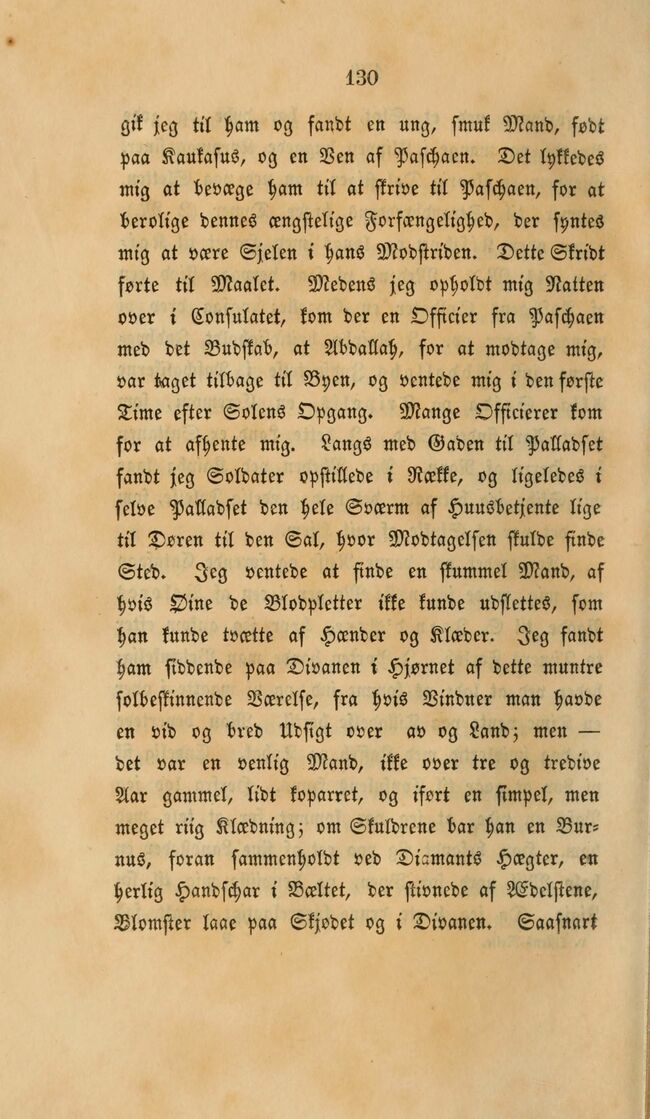 130
gik jeg til ham og fandt en ung, smuk Mand, født
paa Kaukasus, og en Ven af Paschaen. Det lykkedes
mig at bevæge ham til at skrive til Paschaen, for at
berolige dennes ængstelige Forfængelighed, der syntes
mig at være Sjelen i hans Modstriden. Dette Skridt
førte til Maalet. Medens jeg opholdt mig Natten
over i Consulatet, kom der en Officier fra Paschaen
med det Budskab, at Abdallah, for at modtage mig,
var taget tilbage til Byen, og ventede mig i den første
Time efter Solens Opgang. Mange Officierer kom
for at afhente mig. Langs med Gaden til Palladset
fandt jeg Soldater opstillede i Række, og ligeledes i
selve Palladset den hele Sværm af Huusbetjente lige
til Døren til den Sal, hvor Modtagelsen skulde finde
Sted. Jeg ventede at finde en skummel Mand, af
hvis Øine de Blodpletter ikke kunde udslettes, som
han kunde tvætte af Hænder og Klæder. Jeg fandt
ham siddende paa Divanen i Hjørnet af dette muntre
solbeskinnende Værelse, fra hvis Vinduer man havde
en vid og bred Udsigt over av og Land; men —
det var en venlig Mand, ikke over tre og tredive
Aar gammel, lidt koparret, og iført en simpel, men
meget riig Klædning; om Skuldrene bar han en Bur=
nus, foran sammenholdt ved Diamants Hægter, en
herlig Handschar i Bæltet, der stivnede af Ædelstene,
Blomster laae paa Skjødet og i Divanen. Saasnart